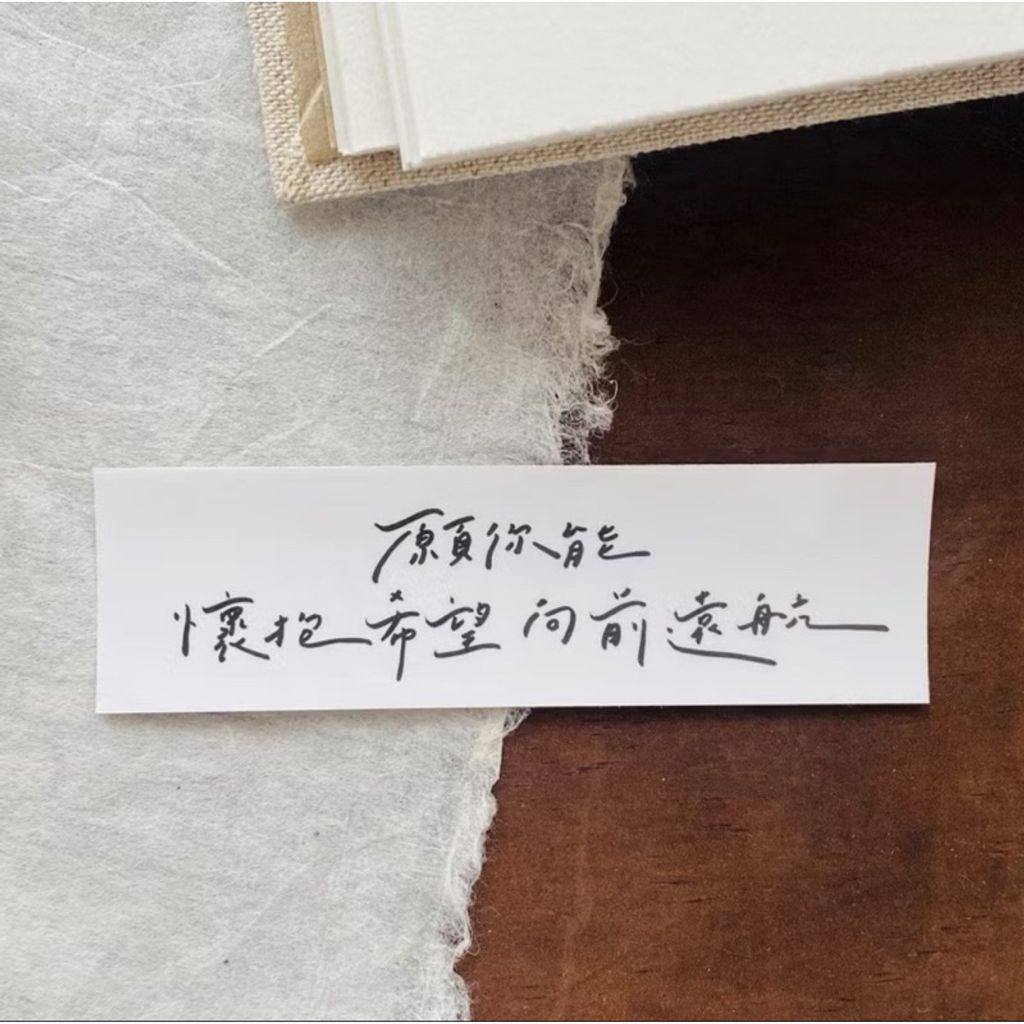 願你能
懷抱希望向前遠航